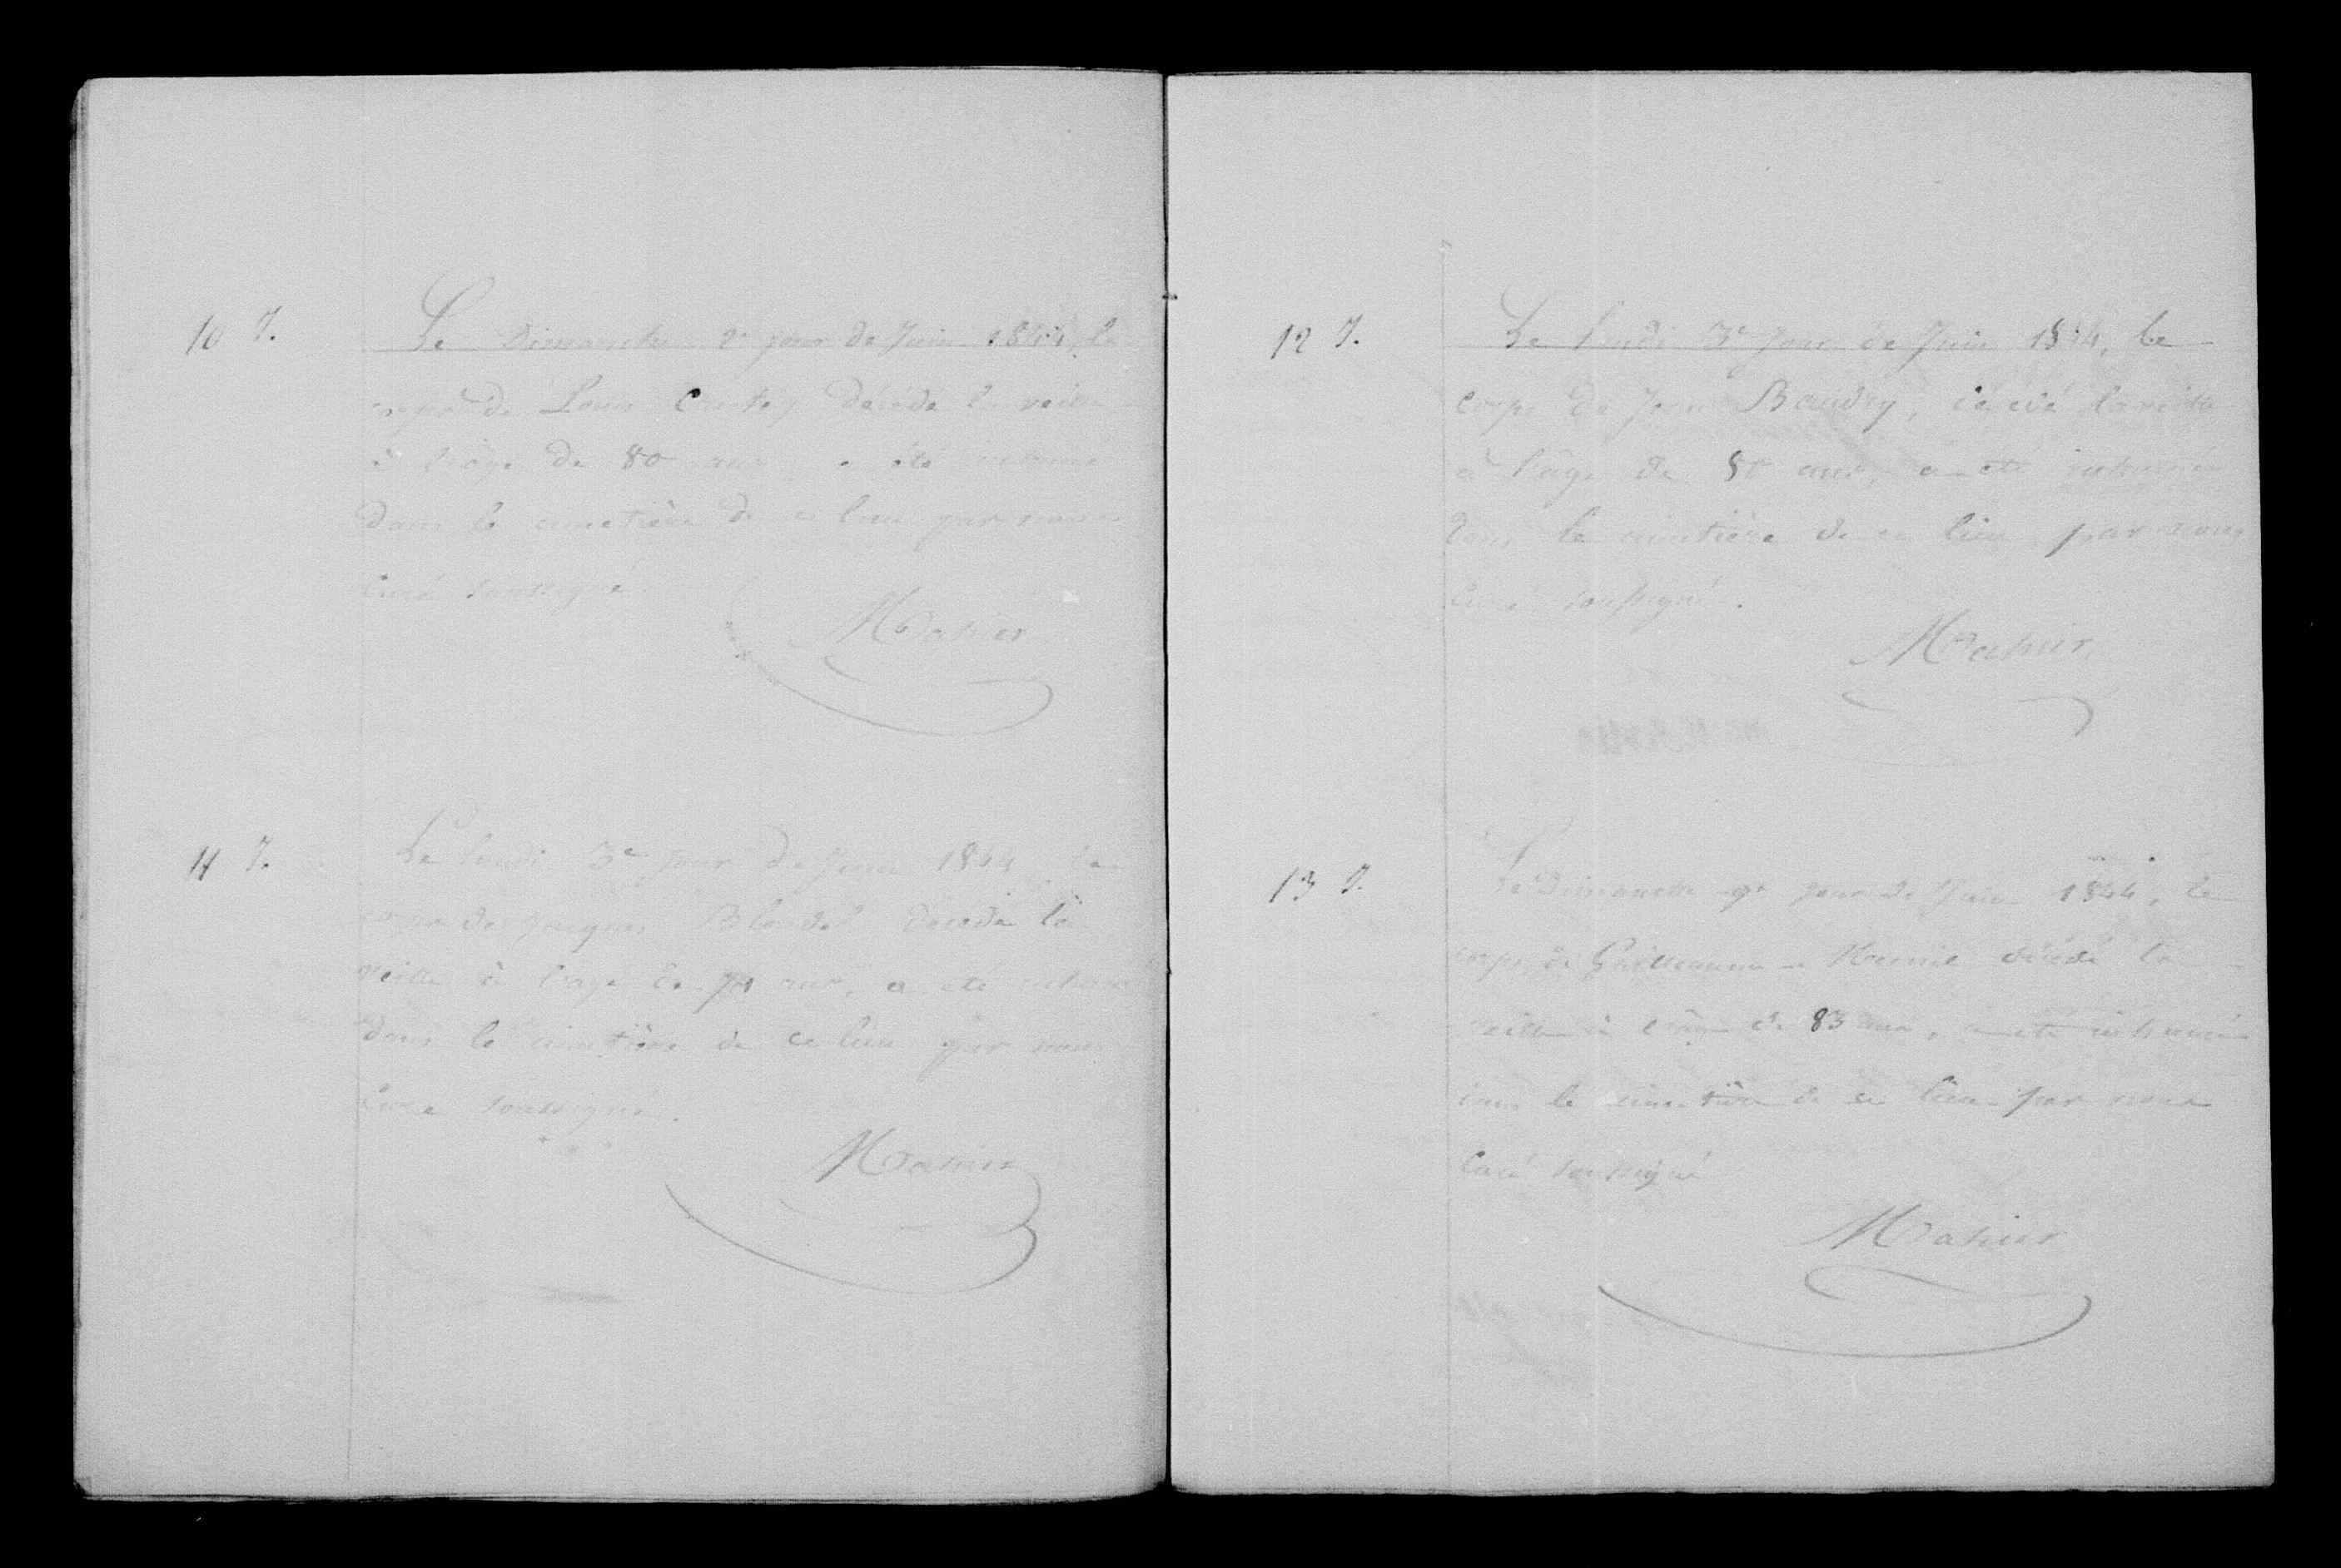 10 I.
Le Dimanche 2e jour de Juin 1844, le
corps de Louis décédé la veille
à l'âge de 80 ans a été inhumé
dans le cimetière de ce lieu par nous
Curé soussigné
Mahier
11 I.
Le lundi 3e jour de Juin 1844 le
corps de Jacques Blondel décédé la
veille à l'âge de ans, a été inhumé
dans le cimetière de ce lieu par nous
Curé soussigné.
Mahier
12 I.
Le lundi 3e jour de Juin 1844, le
corps de Jean Baudry, décédé la veille
à l'âge de ans, a été inhumé
dans le cimetière de ce lieu par nous
Curé soussigné.
Mahier
13 I.
Le Dimanche 9e jour de Juin 1844, le
corps de Guillaume décédé la
veille à l'âge de 83 ans, a été inhumé
dans le cimetière de ce lieu par nous
Curé soussigné
Mahier